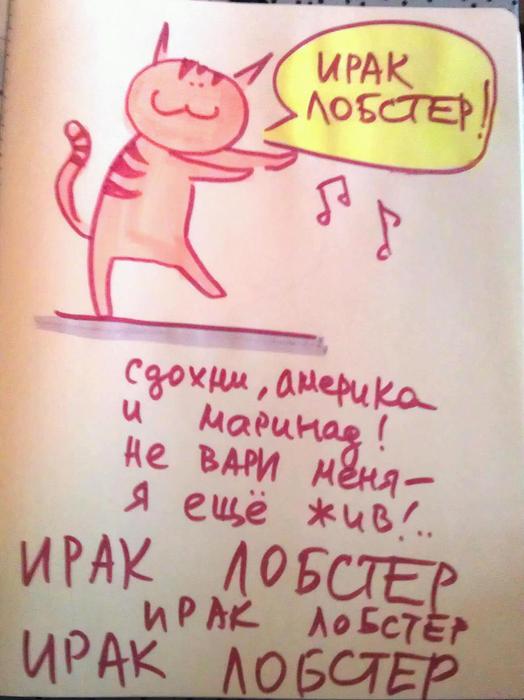 ИРАК
ЛОБСТЕР!
сдохни, америка
и маринад!
не ВАРИ меня—
я ещё жив!..
ИРАК ЛОБСТЕР
ИРАК ЛОБСТЕР
ИРАК ЛОБСТЕР